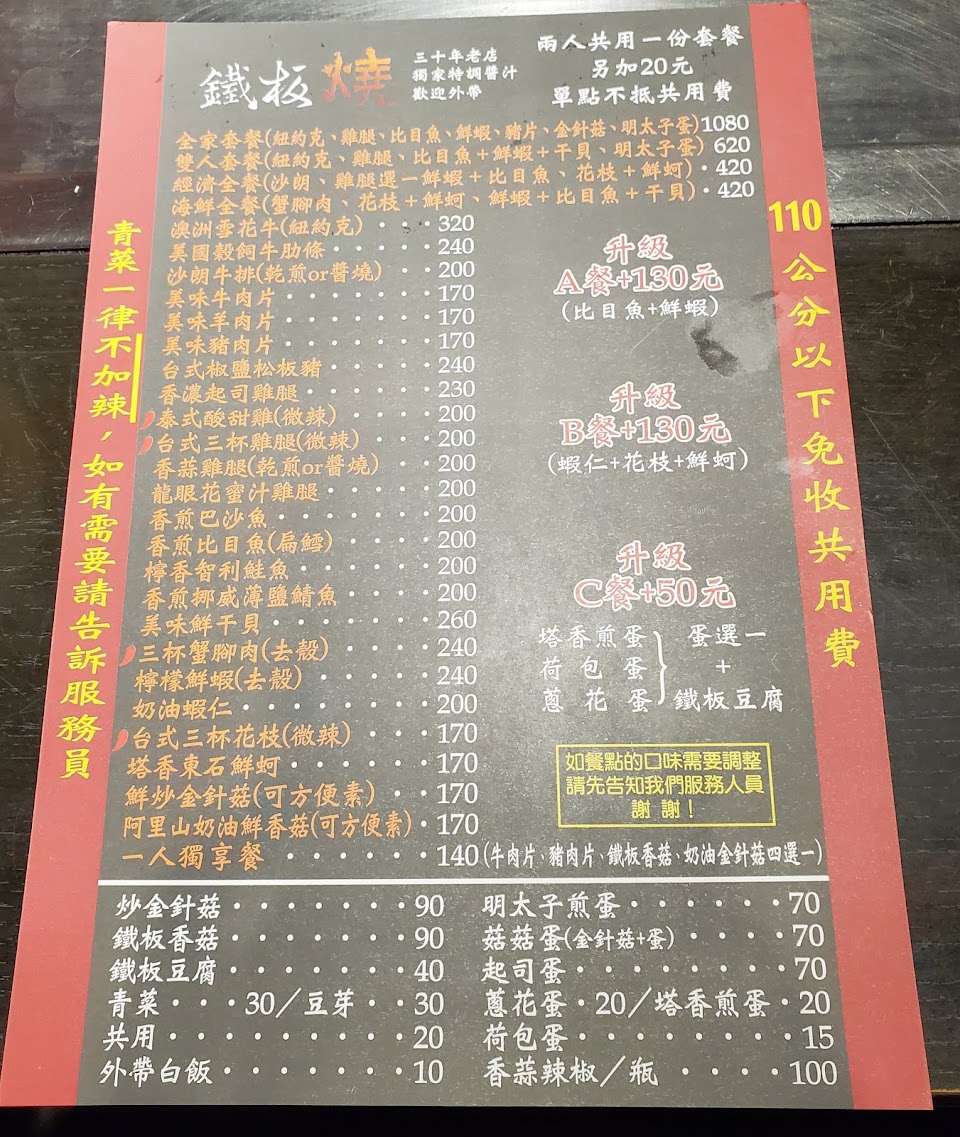 鐵板燒
三十年老店
獨家特調醬汁
歡迎外帶
兩人共用一份套餐
另加20元
單點不抵共用費
全家套餐(紐約克、雞腿、比目魚、鮮蝦、豬片、金針菇、明太子蛋)1080
雙人套餐(紐約克、雞腿、比目魚+鮮蝦+干貝、明太子蛋) 620
經濟全餐(沙朗、雞腿選一鮮蝦+比目魚、花枝+鮮蚵)・420
海鮮全餐(蟹腳肉、花枝+鮮蚵、鮮蝦+比目魚+干貝)・420
澳洲雪花牛(紐約克)・・・320
美國穀飼牛肋條・・・・・240
沙朗牛排(乾煎or醬燒)・・200
美味牛肉片・・・・・・・170
美味羊肉片・・・・・・・170
美味豬肉片・・・・・・・170
台式椒鹽松板豬・・・・・240
香濃起司雞腿・・・・・・230
泰式酸甜雞(微辣)・・・・200
台式三杯雞腿(微辣)・・・200
香蒜雞腿(乾煎or醬燒)・・200
龍眼花蜜汁雞腿・・・・・200
香煎巴沙魚・・・・・・・200
香煎比目魚(扁鱈)・・・・200
檸香智利鮭魚・・・・・・200
香煎挪威薄鹽鯖魚・・・・200
美味鮮干貝・・・・・・・260
三杯蟹腳肉(去殼)・・・・240
檸檬鮮蝦(去殼)・・・・・240
奶油蝦仁・・・・・・・・200
台式三杯花枝(微辣)・・・170
塔香東石鮮蚵・・・・・・170
鮮炒金針菇(可方便素)・・170
阿里山奶油鮮香菇(可方便素)・170
一人獨享餐・・・・・・140(牛肉片、豬肉片、鐵板香菇、奶油金針菇四選一)
升級
A餐+130元
(比目魚+鮮蝦)
升級
B餐+130元
(蝦仁+花枝+鮮蚵)
升級
C餐+50元
塔香煎蛋
荷包蛋
蔥花蛋
蛋選一
+
鐵板豆腐
如餐點的口味需要調整
請先告知我們服務人員
謝謝！
炒金針菇・・・・・・90
鐵板香菇・・・・・・90
鐵板豆腐・・・・・・40
青菜・・・30／豆芽・・30
共用・・・・・・・・20
外帶白飯・・・・・・10
明太子煎蛋・・・・・70
菇菇蛋(金針菇+蛋)・・・・70
起司蛋・・・・・・・・70
蔥花蛋・20／塔香煎蛋・20
荷包蛋・・・・・・・・15
香蒜辣椒／瓶・・・・100
青菜一律不加辣，如有需要請告訴服務員
110公分以下免收共用費